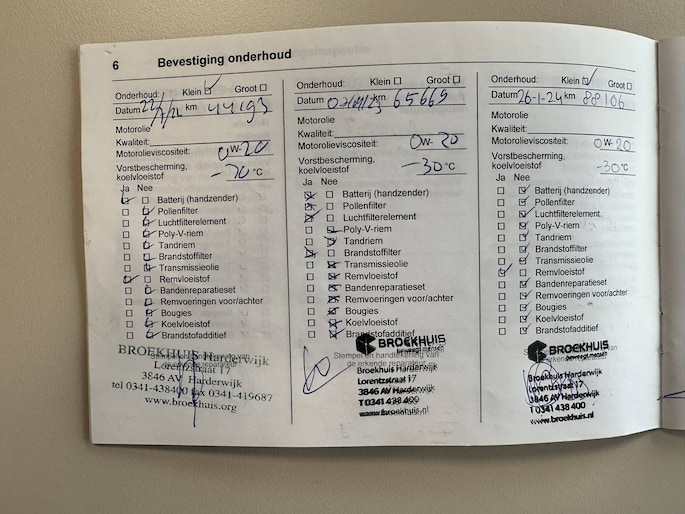 6 Bevestiging onderhoud
Onderhoud: Klein Groot
Datum km 44193
Motorolie
Kwaliteit:
Motorolieviscositeit: 0W-20
Vorstbescherming,
koelvloeistof °C
Ja Nee
Batterij (handzender)
Pollenfilter
Luchtfilterelement
Poly-V-riem
Tandriem
Brandstoffilter
Transmissieolie
Remvloeistof
Bandenreparatieset
Remvoeringen voor/achter
Bougies
Koelvloeistof
Brandstofadditief
BROEKHUIS Harderwijk
Lorentzstraat 17
3846 AV Harderwijk
tel 0341-438400 fax 0341-419687
www.broekhuis.org
Onderhoud: Klein Groot
Datum km 65669
Motorolie
Kwaliteit:
Motorolieviscositeit: 0W-20
Vorstbescherming,
koelvloeistof -30 °C
Ja Nee
Batterij (handzender)
Pollenfilter
Luchtfilterelement
Poly-V-riem
Tandriem
Brandstoffilter
Transmissieolie
Remvloeistof
Bandenreparatieset
Remvoeringen voor/achter
Bougies
Koelvloeistof
Brandstofadditief
BROEKHUIS
beweegt mensen
Stempel en handtekening van
de erkende reparateur
Broekhuis Harderwijk
Lorentzstraat 17
3846 AV Harderwijk
T 0341 438 400
www.broekhuis.nl
Onderhoud: Klein Groot
Datum 26-1-24 km 88106
Motorolie
Kwaliteit:
Motorolieviscositeit: 0W-20
Vorstbescherming,
koelvloeistof -30 °C
Ja Nee
Batterij (handzender)
Pollenfilter
Luchtfilterelement
Poly-V-riem
Tandriem
Brandstoffilter
Transmissieolie
Remvloeistof
Bandenreparatieset
Remvoeringen voor/achter
Bougies
Koelvloeistof
Brandstofadditief
BROEKHUIS
beweegt mensen
Broekhuis Harderwijk
Lorentzstraat 17
3846 AV Harderwijk
T 0341 438 400
www.broekhuis.nl